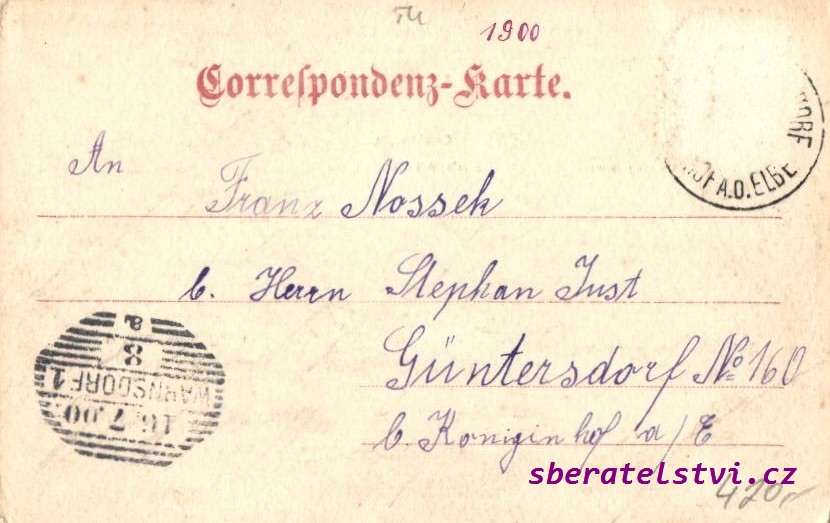 1900
Correspondenz-Karte.
An
Franz Nossek
b. Herrn Stephan Just
Güntersdorf No 160
b. Königinhof a/E
A.D. ELBE
WARNSDORF 1
16.7.00
8
a
sberatelstvi.cz
420,-